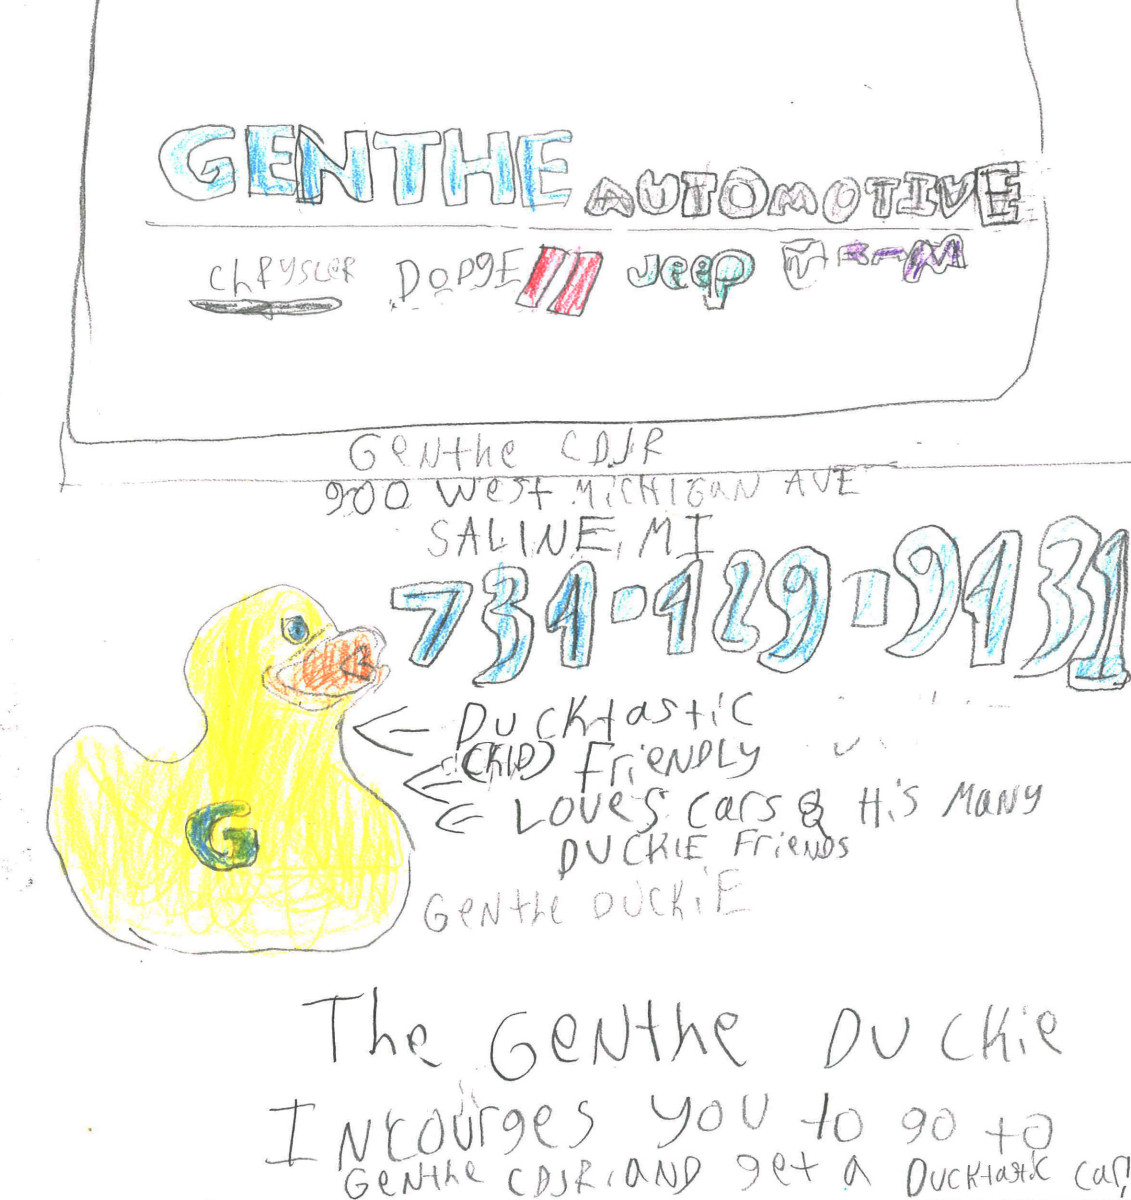 GENTHE AUTOMOTIVE
ChRYSLER DODGE Jeep RAM
Genthe CDJR
900 West MICHIGAN AVE
SALINE, MI
734-429-9431
DUCKtastic
(KID) FrieNDLY
LOVES cars & His MaNy
DUCKIE FrieNDS
GeNthe DUCKiE
G
The GeNthe DUCKie
INcourges you to go to
Genthe CDJR, AND get a DUCKtastic car!